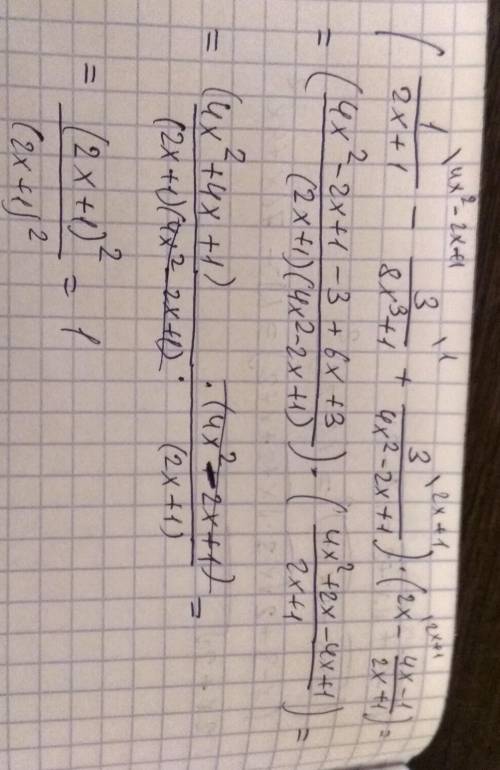 ( 1/(2x+1) \4x²-2x+1 - 3/(8x³+1) \1 + 3/(4x²-2x+1) \2x+1 ) · ( 2x \2x+1 - (4x-1)/(2x+1) ) =
= ( (4x²-2x+1-3+6x+3)/((2x+1)(4x²-2x+1)) ) · ( (4x²+2x-4x+1)/(2x+1) ) =
= (4x²+4x+1)/((2x+1)(4x²-2x+1)) · (4x²-2x+1)/(2x+1) =
= (2x+1)²/(2x+1)² = 1